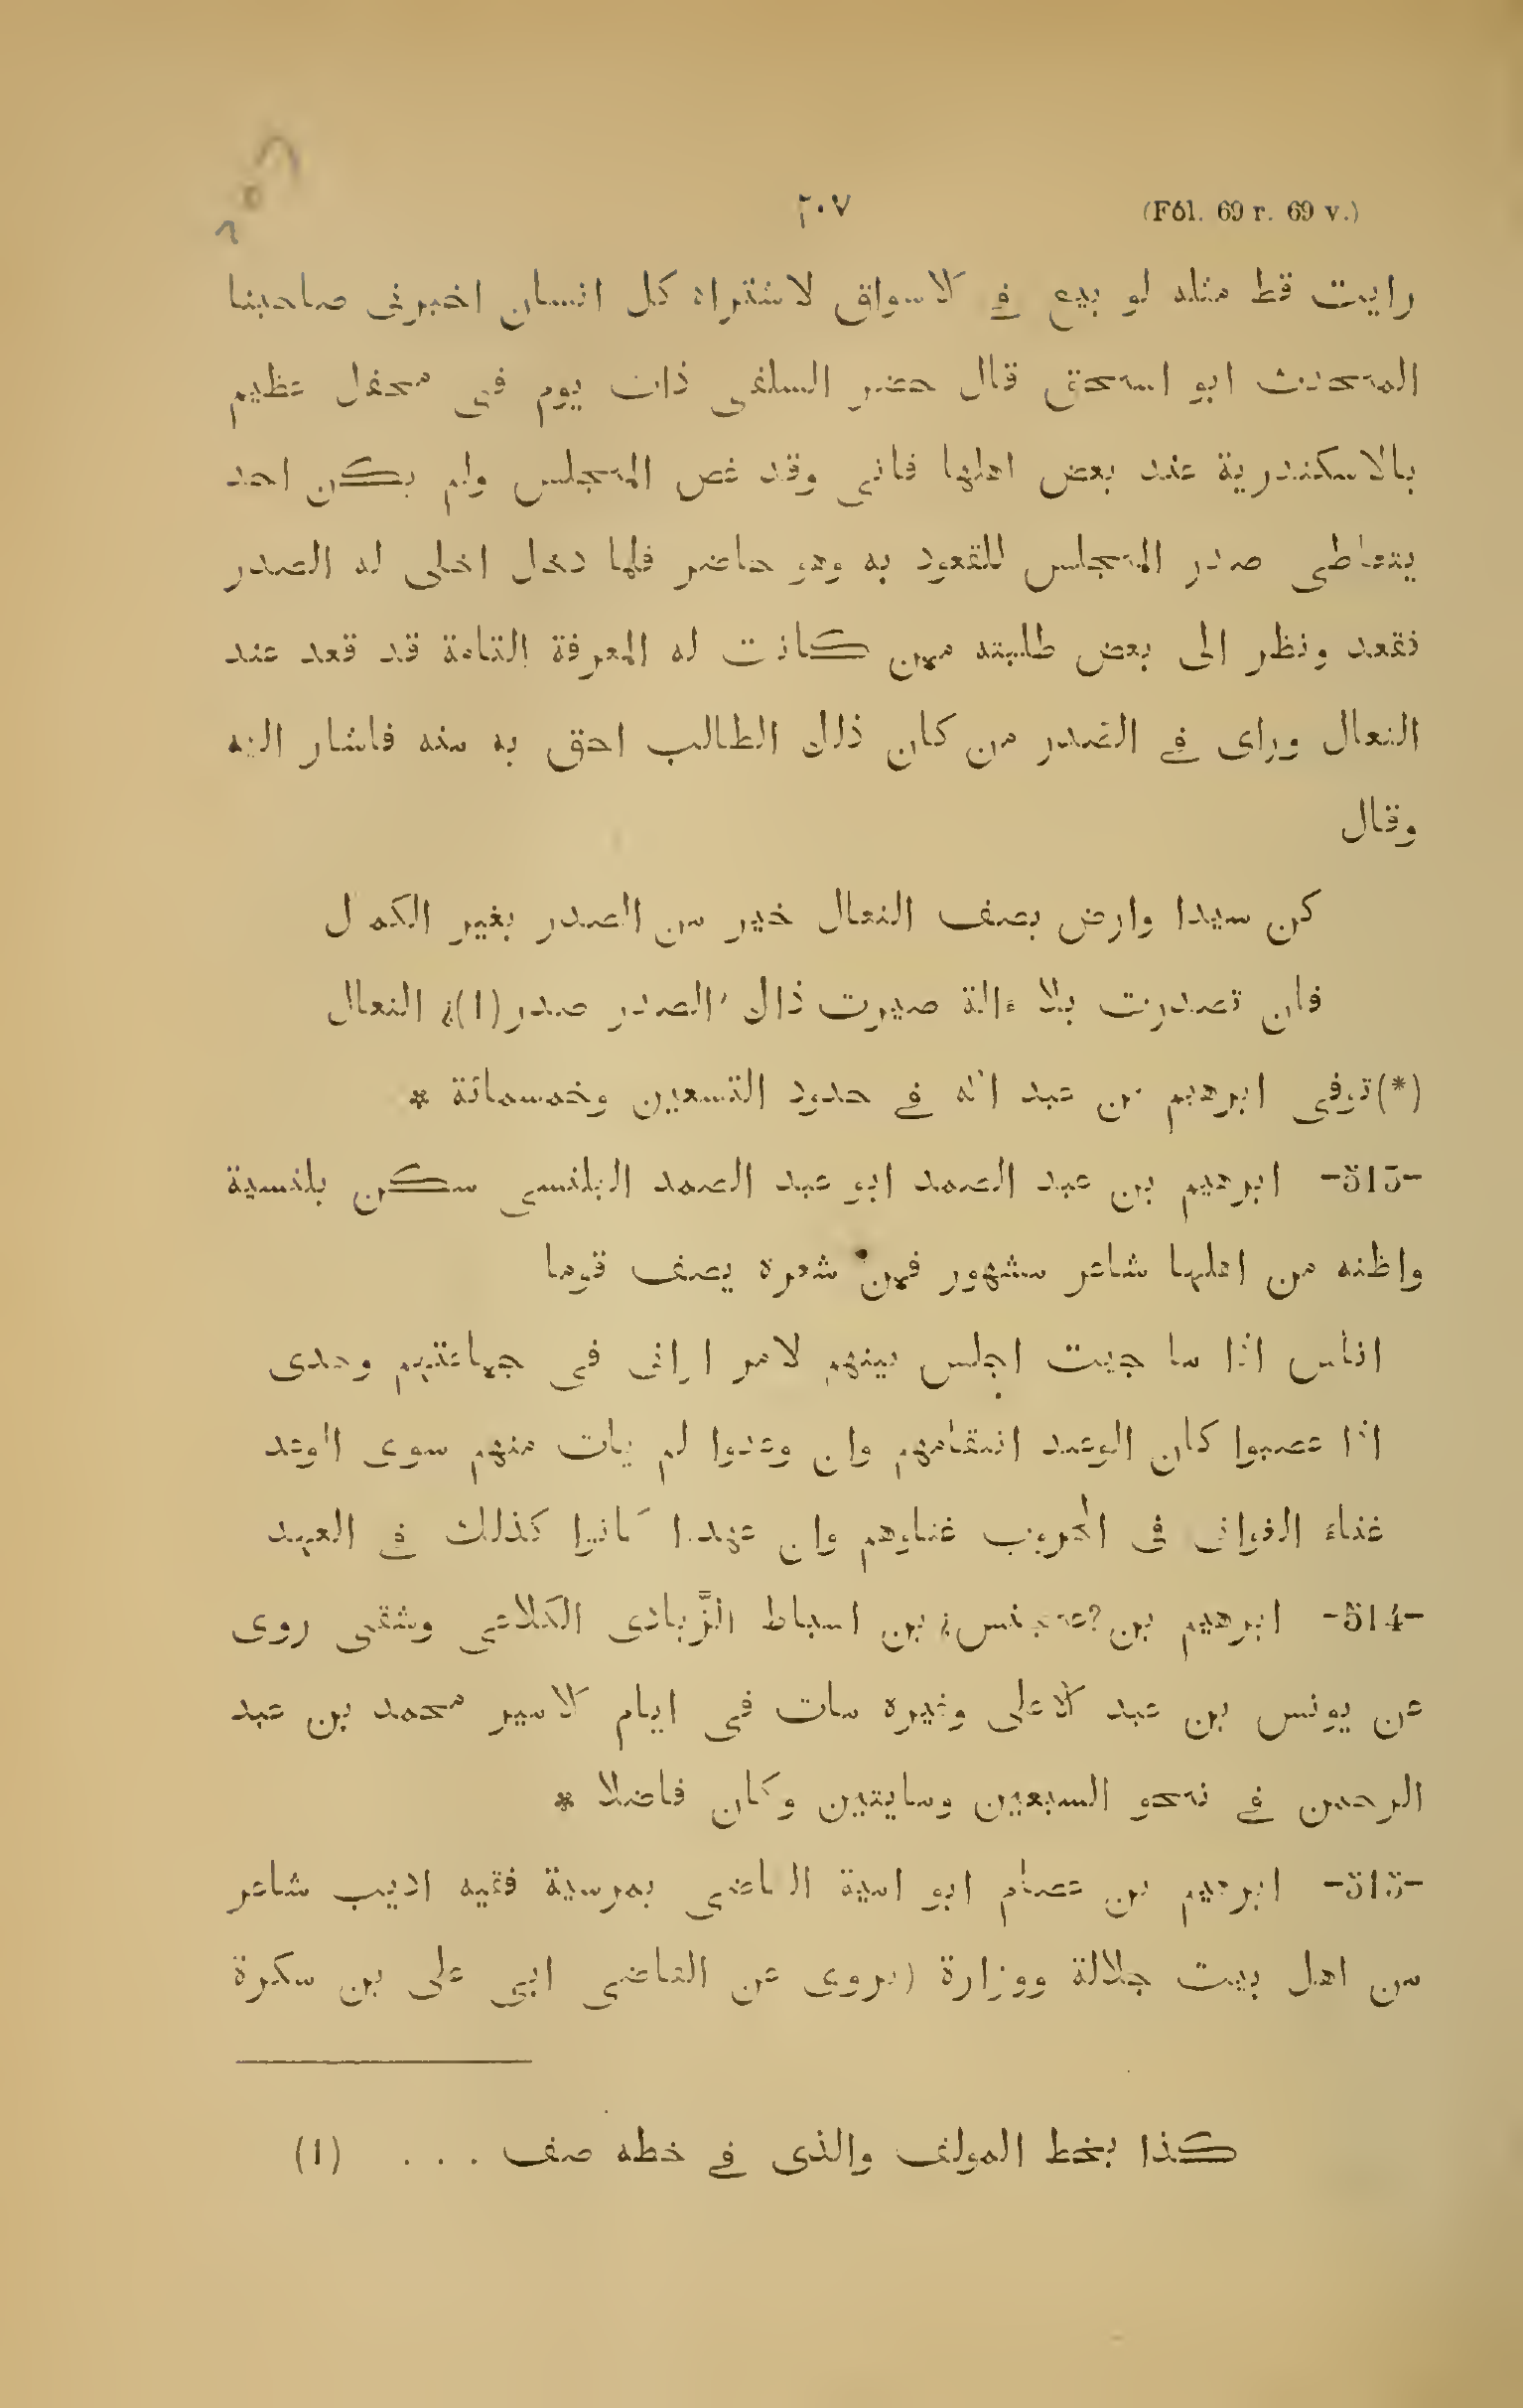 (Fól. 69 r. 69 v.) ٢٠٧
رايت قط مثله لو بيع في الاسواق لاشتراه كل انسان اخبرني صاحبنا
المحدث ابو اسحق قال حضر السلفى ذات يوم في محفل عظيم
بالاسكندرية عند بعض اهلها فاتى وقد غص المجلس ولم يكن احد
يتعاطى صدر المجلس للقعود به وهو حاضر فلما دخل اخلى له الصدر
فقعد ونظر الى بعض طلبته ممن كانت له المعرفة التامة قد قعد عند
النعال وراى في الصدر من كان ذلك الطالب احق به منه فاشار اليه
وقال
كن سيدا وارض بصف النعال خير من الصدر بغير الكمال
فان تصدرت بلا ءالة صيرت ذاك الصدر صدر(1)؛ النعال
(*)توفى ابرهيم بن عبد الله في حدود التسعين وخمسمائة *
-513- ابرهيم بن عبد الصمد ابو عبد الصمد البلنسى سكن بلنسية
واظنه من اهلها شاعر مشهور فمن شعره يصف قوما
اناس اذا ما جيت اجلس بينهم لامر ارانى في جماعتهم وحدى
اذا غضبوا كان الوعيد انتقامهم وان وعدوا لم يات منهم سوى الوعد
غناء الغوانى في الحروب غناوهم وان عهدوا كانوا كذلك في العهد
-514- ابرهيم بن ؟عجنس؛ بن اسباط الزَّبادى الكلاعى وشقى روى
عن يونس بن عبد الاعلى وغيره مات في ايام الامير محمد بن عبد
الرحمن في نحو السبعين ومايتين وكان فاضلا *
-515- ابرهيم بن عصام ابو امية القاضى بمرسية فقيه اديب شاعر
من اهل بيت جلالة ووزارة يروى عن القاضى ابى على بن سكرة
(1) كذا بخط المولف والذى في خطه صف . . .